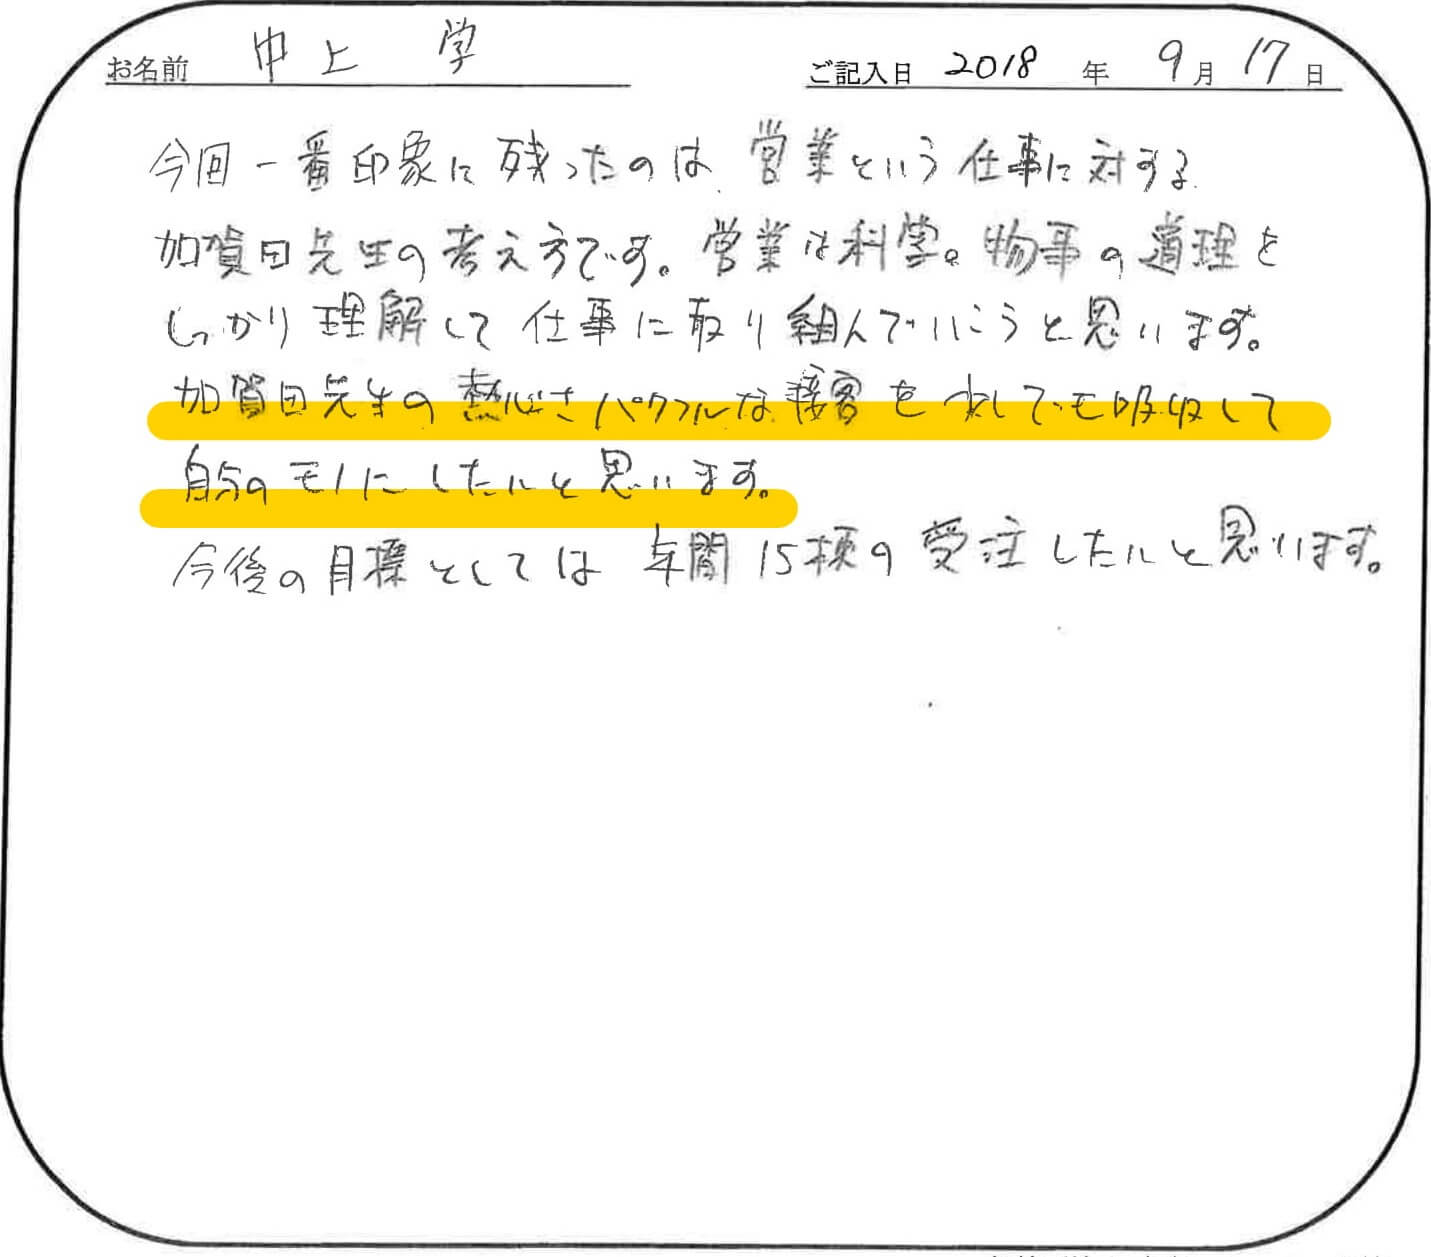 お名前 中上 学 ご記入日 2018 年 9 月 17 日
今回一番印象に残ったのは、営業という仕事に対する
加賀田先生の考え方です。営業は科学。物事の道理を
しっかり理解して仕事に取り組んでいこうと思います。
加賀田先生の熱心さパワフルな接客を少しでも吸収して
自分のモノにしたいと思います。
今後の目標としては年間15棟の受注したいと思います。